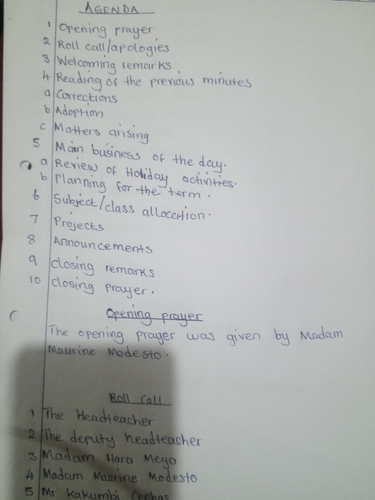 AGENDA
1 Opening prayer
2 Roll call/apologies
3 Welcoming remarks
4 Reading of the previous minutes
a Corrections
b Adoption
c Matters arising
5 Main business of the day.
a Review of Holiday activities.
b Planning for the term.
6 Subject/class allocation.
7 Projects
8 Announcements
9 Closing remarks
10 Closing prayer.
Opening prayer
The opening prayer was given by Madam
Maurine Modesto.
Roll Call
1 The Headteacher
2 The deputy headteacher
3 Madam Hara Meya
4 Madam Maurine Modesto
5 Mr Kakumbi Cephas